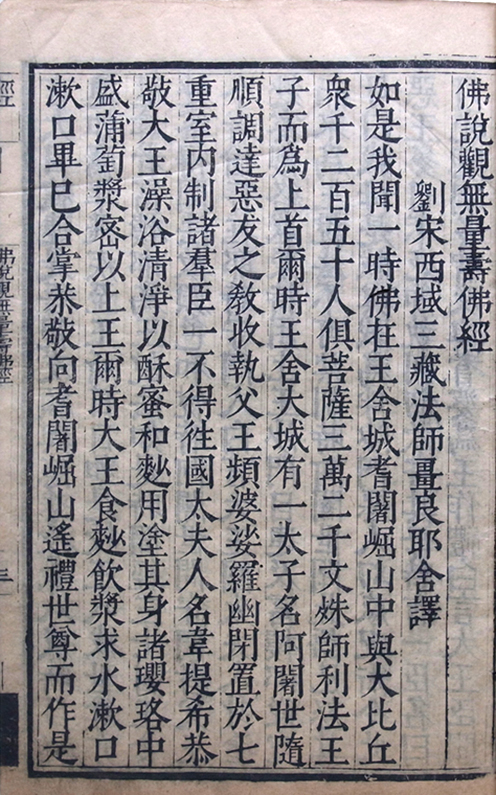 佛說觀無量壽佛經
劉宋西域三藏法師畺良耶舍譯
如是我聞一時佛在王舍城耆闍崛山中與大比丘
衆千二百五十人俱菩薩三萬二千文殊師利法王
子而爲上首爾時王舍大城有一太子名阿闍世隨
順調達惡友之敎收執父王頻婆娑羅幽閉置於七
重室內制諸羣臣一不得徃國太夫人名韋提希恭
敬大王澡浴清淨以酥蜜和麨用塗其身諸瓔珞中
盛蒲萄漿密以上王爾時大王食麨飲漿求水漱口
漱口畢已合掌恭敬向耆闍崛山遙禮世尊而作是
佛說觀無量壽佛經
三